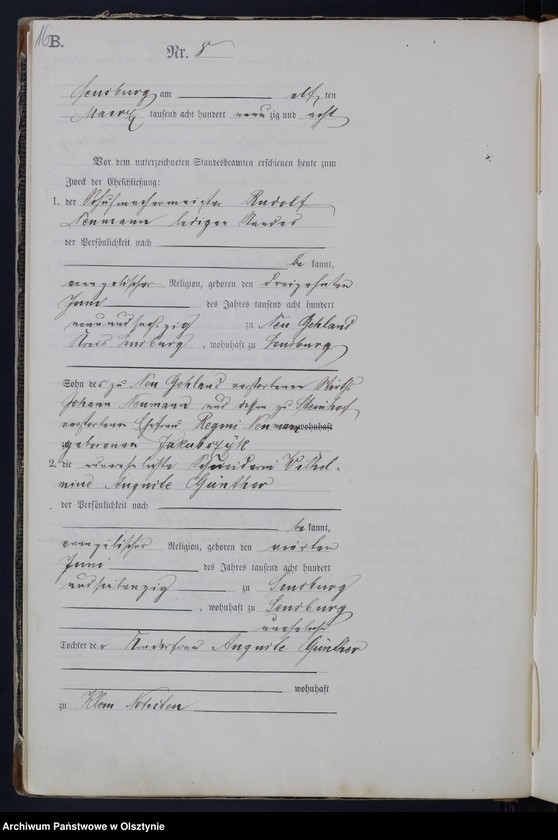 16
B.
Nr. 8
Sensburg am elf ten
Maerz tausend acht hundert neun zig und acht
Vor dem unterzeichneten Standesbeamten erschienen heute zum
Zweck der Eheschließung:
1. der Schuhmachermeister Rudolf
Neumann ledigen Standes
der Persönlichkeit nach
be kannt,
evangelischer Religion, geboren den dreizehnten
Juni des Jahres tausend acht hundert
neunundsechszig zu Neu Gehland
Kreis Sensburg, wohnhaft zu Sensburg
Sohn des zu Neu Gehland verstorbenen Wirths
Johann Neumann und dessen zu Steinhof
verstorbenen Ehefrau Regine Neumann wohnhaft
geborenen Jakubczyk
2. die unverehelichte Schneiderin Wilhel-
mine Auguste Günther
der Persönlichkeit nach
be kannt,
evangelischer Religion, geboren den vierten
Juni des Jahres tausend acht hundert
undsiebenzig zu Sensburg
, wohnhaft zu Sensburg
uneheliche
Tochter der Kinderfrau Auguste Günther
wohnhaft
zu Klein
Archiwum Państwowe w Olsztynie